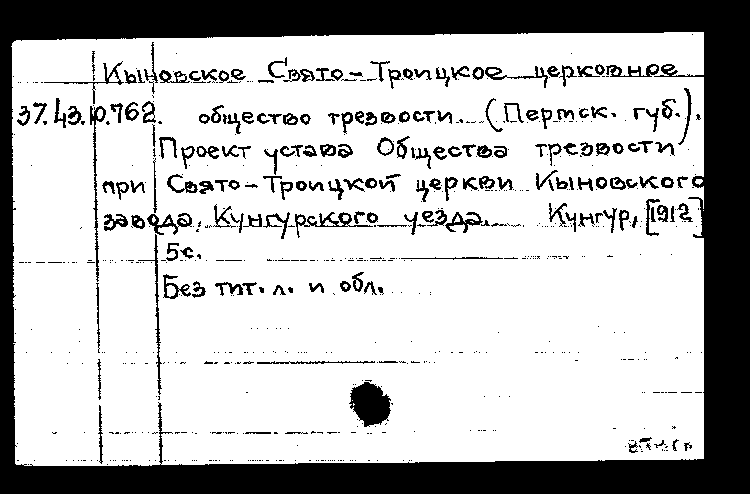 Кыновское Свято-Троицкое церковное
37.43.10.762. общество трезвости. (Пермск. губ.).
Проект устава Общества трезвости
при Свято-Троицкой церкви Кыновского
завода, Кунгурского уезда. Кунгур, [1912]
5с.
Без тит. л. и обл.